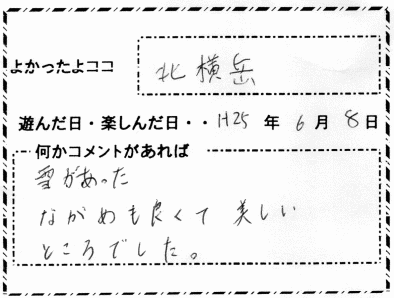 よかったよココ 北横岳
遊んだ日・楽しんだ日・・H25 年 6 月 8 日
何かコメントがあれば
雪があった
ながめも良くて 美しい
ところでした。